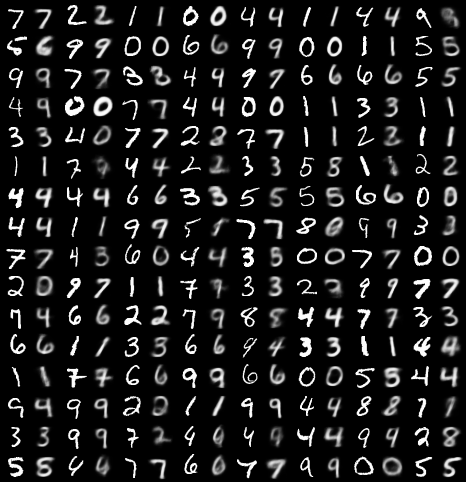 7 7 2 2 1 1 0 0 4 4 1 1 4 4 9
5 6 9 9 0 0 6 6 9 9 0 0 1 1 5 5
9 9 7 7 3 3 4 4 9 9 6 6 6 6 5 5
4 9 0 0 7 7 4 4 0 0 1 1 3 3 1 1
3 3 4 0 7 7 2 2 7 7 1 1 2 2 1 1
1 1 7 4 4 2 2 3 3 5 8 1 1 2 2
4 4 4 4 6 6 3 3 5 5 5 5 6 6 0 0
4 4 1 1 9 9 5 7 7 8 0 9 9 3 3
7 7 4 3 6 0 4 4 3 3 0 0 7 7 0 0
2 0 9 9 1 1 7 9 3 3 2 2 9 9 7 7
7 4 6 6 2 2 7 9 8 8 4 4 7 7 3 3
6 6 1 1 3 3 6 6 9 4 3 3 1 1 4 4
1 1 7 7 6 6 9 9 6 6 0 0 5 5 4 4
9 9 9 9 2 2 1 1 9 9 4 4 8 8 7 7
3 3 9 9 7 2 4 4 4 4 4 9 4 2 8
5 5 4 4 7 7 6 6 7 7 9 9 0 0 5 5